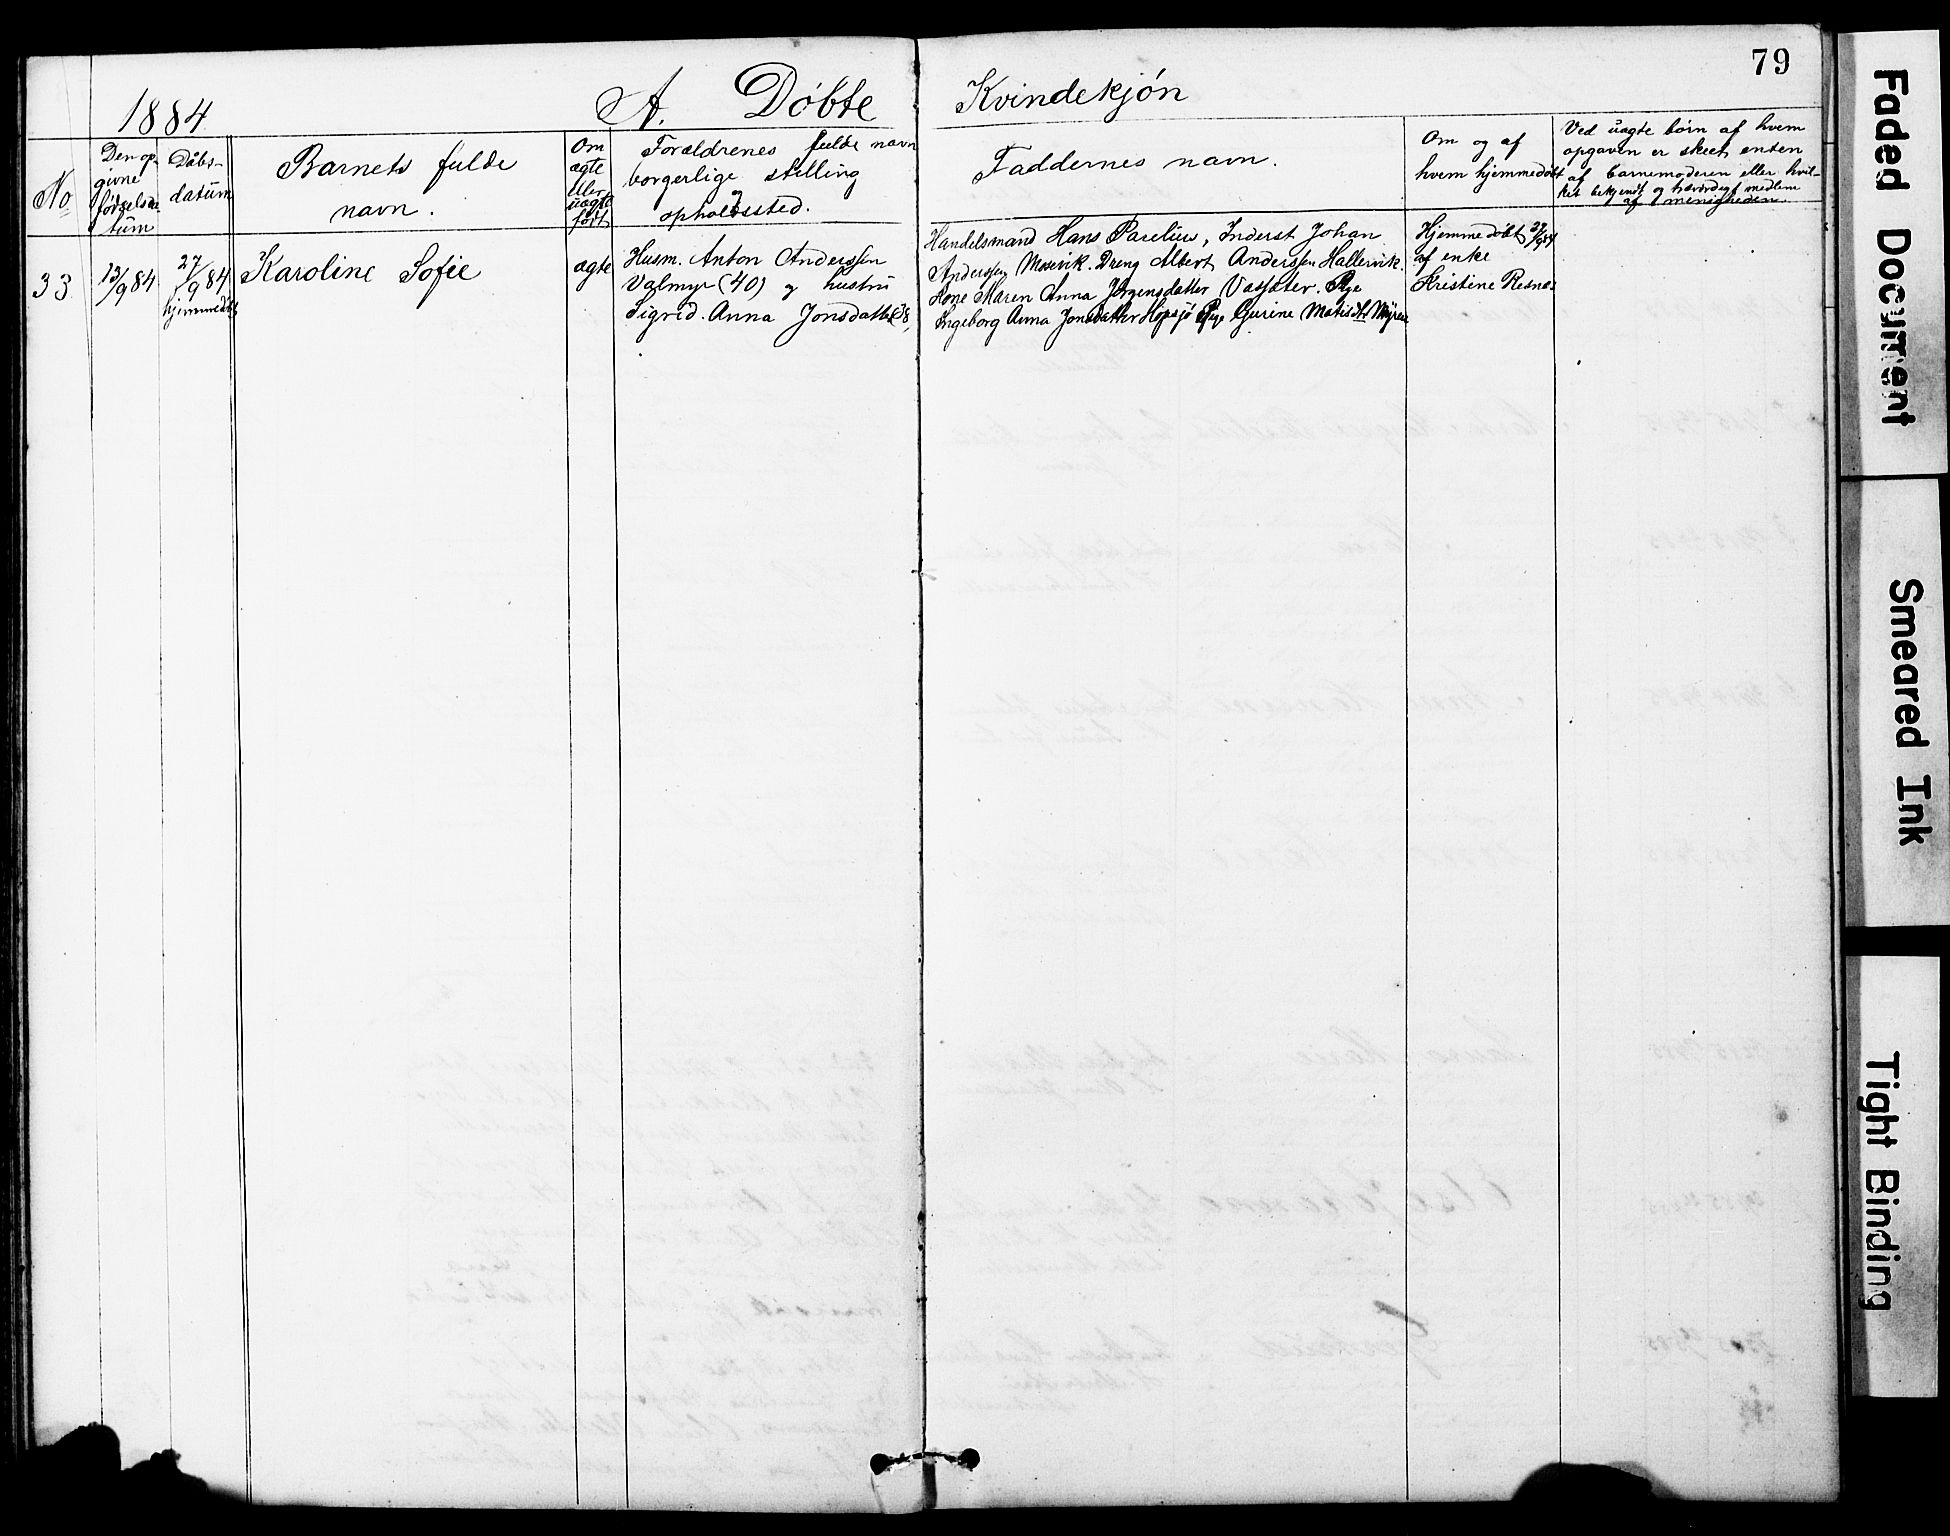 79
1884
A. Døbte Kvindekjøn
No
Den op-
givne
fødselsda-
tum
Dåbs-
datum
Barnets fulde
navn.
Om
ægte
eller
uægte
født
Forældrenes fulde navn
borgerlige stilling
og
opholdssted.
Faddernes navn.
Om og af
hvem hjemmedøbt
Ved uægte børn af hvem
opgaven er skeet enten
af barnemoderen eller hvil-
ket bekjendt og hæderligt medlem
af menigheden.
33
13/9 84
27/9 84
hjemmedøbt
Karoline Sofie
ægte
Husm. Anton Anderssen
Valmyr (40) og hustru
Sigrid Anna Jonsdatter
Handelsmand Hans Parelius, Inderst Johan
Anderssen Mosevik. Dreng Albert Anderssen Hallervik.
Kone Maren Anna Jørgensdatter Vasseter. Pige
Ingeborg Anna Jonsdatter Hopsjø Pige Gurine Matisdt Myren
Hjemmedøbt 27/9 84
af enke
Kristine Resnes
Faded Document
Smeared Ink
Tight Binding